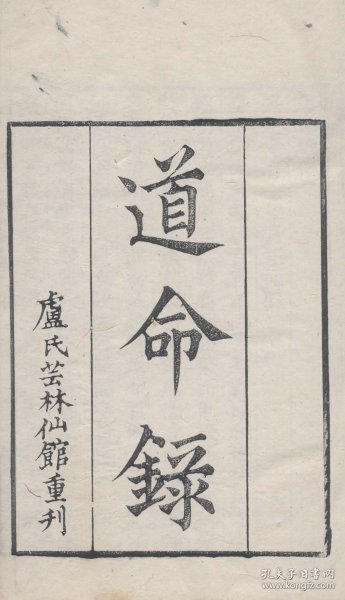 道命錄
盧氏芸林仙館重刋
孔夫子旧书网